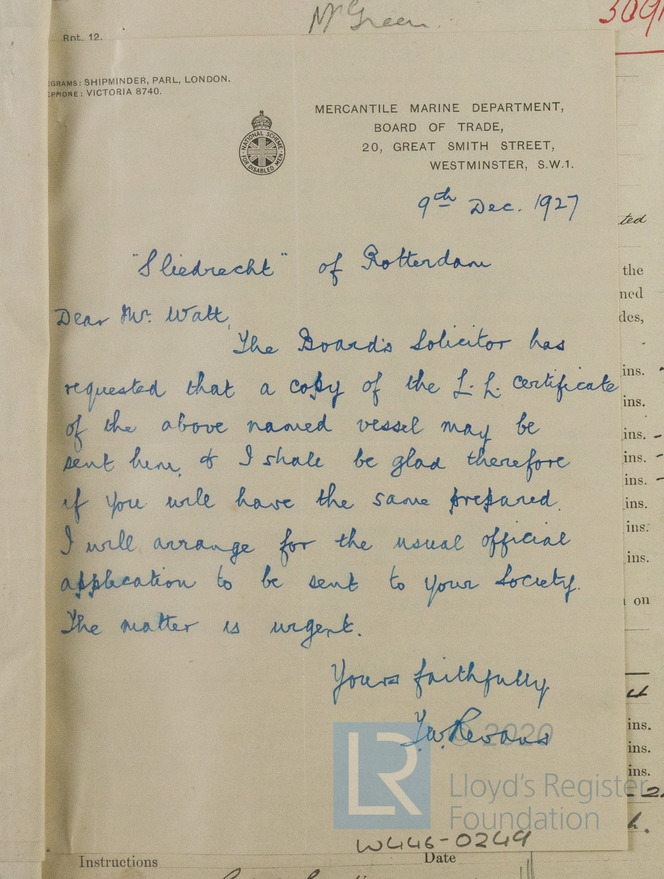 Mr Green
Rnt. 12.
GRAMS: SHIPMINDER, PARL, LONDON.
EPHONE: VICTORIA 8740.
NATIONAL SCHEME
FOR DISABLED MEN
MERCANTILE MARINE DEPARTMENT,
BOARD OF TRADE,
20, GREAT SMITH STREET,
WESTMINSTER, S.W.1.
9th Dec. 1927
"Sliedrecht" of Rotterdam
Dear Mr. Watt,
The Board's Solicitor has
requested that a copy of the L.L. certificate
of the above named vessel may be
sent him, & I shall be glad therefore
if you will have the same prepared.
I will arrange for the usual official
application to be sent to your Society.
The matter is urgent.
Yours faithfully
© 2020
LR
Lloyd's Register
Foundation
W446-0249
Instructions
Date
ted
the
ned
des,
ins.
ins.
ins.
ins.
ins.
ins.
ins.
ins.
on
ins.
ins.
ins.